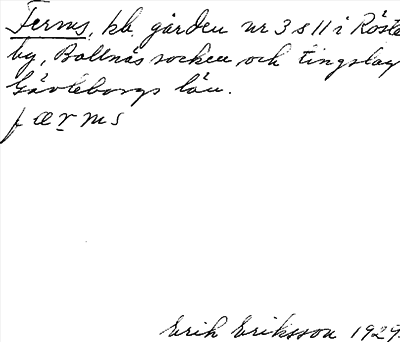 Ferms, kb, gården nr 3 & 11 i Röste
by, Bollnäs socken och tingslag
Gävleborgs län.
f æ r m s
Erik Eriksson 1929.